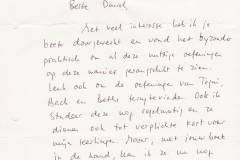 Beste David,
Met veel interesse heb ik je
boek doorgewerkt en vond het bijzonder
praktisch om al deze nuttige oefeningen
op deze manier gerangschikt te zien.
Leuk ook om de oefeningen van Togni,
Bach en Bettys terug te vinden. Ook ik
studeer deze nog regelmatig en ze
dienen ook tot verplichte kost voor
mijn leerlingen. Maar, met jouw boek
in de hand, kan ik ze nu nog